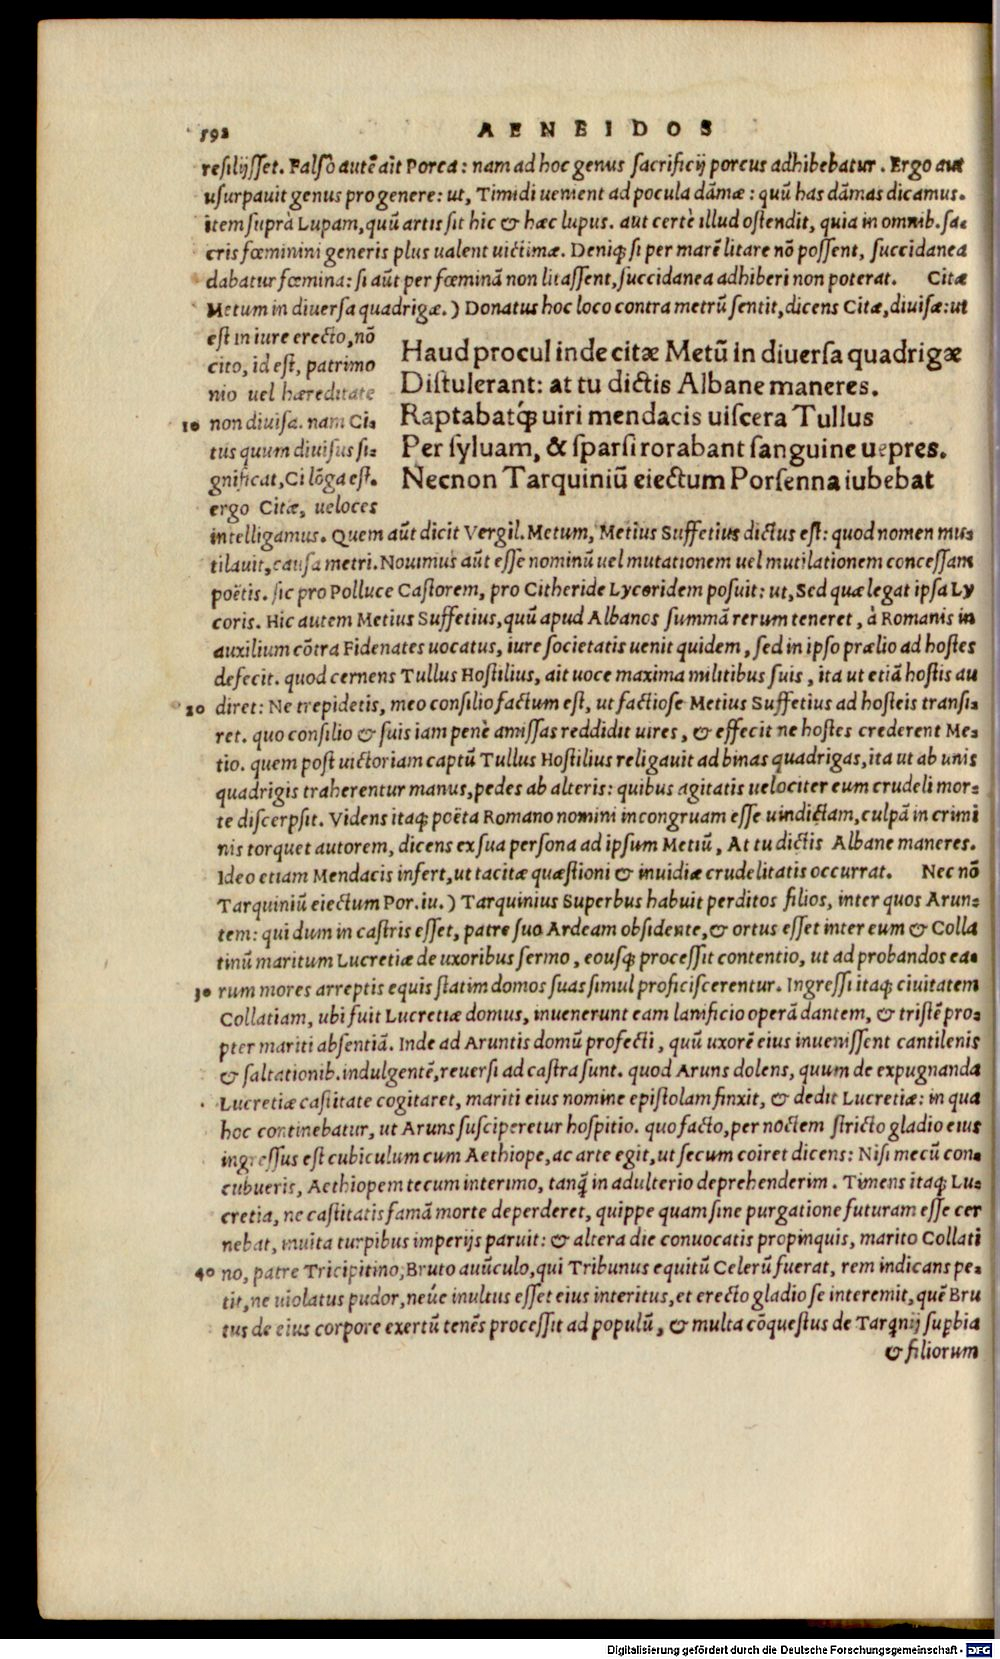 592 AENEIDOS
resilijsset. Falsò autē ait Porca: nam ad hoc genus sacrificij porcus adhibebatur. Ergo aut
usurpauit genus pro genere: ut, Timidi uenient ad pocula dāmæ: quū has dāmas dicamus.
item suprà Lupam, quū artis sit hic & hæc lupus. aut certè illud ostendit, quia in omnib. sa-
cris fœminini generis plus ualent uictimæ. Deniq; si per marē litare nō possent, succidanea
dabatur fœmina: si aūt per fœminā non litassent, succidanea adhiberi non poterat. Citæ
Metum in diuersa quadrigæ.) Donatus hoc loco contra metrū sentit, dicens Citæ, diuisæ: ut
est in iure erecto, nō
cito, id est, patrimo
nio uel hæreditate
10 non diuisa. nam Ci-
tus quum diuisus si-
gnificat, Ci lōga est.
ergo Citæ, ueloces
Haud procul inde citæ Metū in diuersa quadrigæ
Distulerant: at tu dictis Albane maneres.
Raptabatq́; uiri mendacis uiscera Tullus
Per syluam, & sparsi rorabant sanguine uepres.
Necnon Tarquiniū eiectum Porsenna iubebat
intelligamus. Quem aūt dicit Vergil. Metum, Metius Suffetius dictus est: quod nomen mu-
tilauit, causa metri. Nouimus aūt esse nominū uel mutationem uel mutilationem concessam
poëtis. sic pro Polluce Castorem, pro Citheride Lycoridem posuit: ut, Sed quæ legat ipsa Ly
coris. Hic autem Metius Suffetius, quū apud Albanos summā rerum teneret, à Romanis in
auxilium cōtra Fidenates uocatus, iure societatis uenit quidem, sed in ipso prælio ad hostes
defecit. quod cernens Tullus Hostilius, ait uoce maxima militibus suis, ita ut etiā hostis au
20 diret: Ne trepidetis, meo consilio factum est, ut factiose Metius Suffetius ad hosteis transi-
ret. quo consilio & suis iam penè amissas reddidit uires, & effecit ne hostes crederent Me-
tio. quem post uictoriam captū Tullus Hostilius religauit ad binas quadrigas, ita ut ab unis
quadrigis traherentur manus, pedes ab alteris: quibus agitatis uelociter eum crudeli mor-
te discerpsit. Videns itaq; poëta Romano nomini incongruam esse uindictam, culpā in crimi
nis torquet autorem, dicens ex sua persona ad ipsum Metiū, At tu dictis Albane maneres.
Ideo etiam Mendacis infert, ut tacitæ quæstioni & inuidiæ crudelitatis occurrat. Nec nō
Tarquiniū eiectum Por. iu.) Tarquinius Superbus habuit perditos filios, inter quos Arun-
tem: qui dum in castris esset, patre suo Ardeam obsidente, & ortus esset inter eum & Colla
tinū maritum Lucretiæ de uxoribus sermo, eousq; processit contentio, ut ad probandos ea-
30 rum mores arreptis equis statim domos suas simul proficiscerentur. Ingressi itaq; ciuitatem
Collatiam, ubi fuit Lucretiæ domus, inuenerunt eam lanificio operā dantem, & tristē pro-
pter mariti absentiā. Inde ad Aruntis domū profecti, quū uxorē eius inuenissent cantilenis
& saltationib. indulgentē, reuersi ad castra sunt. quod Aruns dolens, quum de expugnanda
Lucretiæ castitate cogitaret, mariti eius nomine epistolam finxit, & dedit Lucretiæ: in qua
hoc continebatur, ut Aruns susciperetur hospitio. quo facto, per noctem stricto gladio eius
ingressus est cubiculum cum Aethiope, ac arte egit, ut secum coiret dicens: Nisi mecū con-
cubueris, Aethiopem tecum interimo, tanq̄ in adulterio deprehenderim. Timens itaq; Lu-
cretia, ne castitatis famā morte deperderet, quippe quam sine purgatione futuram esse cer
nebat, inuita turpibus imperijs paruit: & altera die conuocatis propinquis, marito Collati
40 no, patre Tricipitino, Bruto auūculo, qui Tribunus equitū Celerū fuerat, rem indicans pe-
tit, ne uiolatus pudor, neúe inultus esset eius interitus, et erecto gladio se interemit, quē Bru
tus de eius corpore exertū tenēs processit ad populū, & multa cōquestus de Tarq̄nij supbia
& filiorum
Digitalisierung gefördert durch die Deutsche Forschungsgemeinschaft - DFG